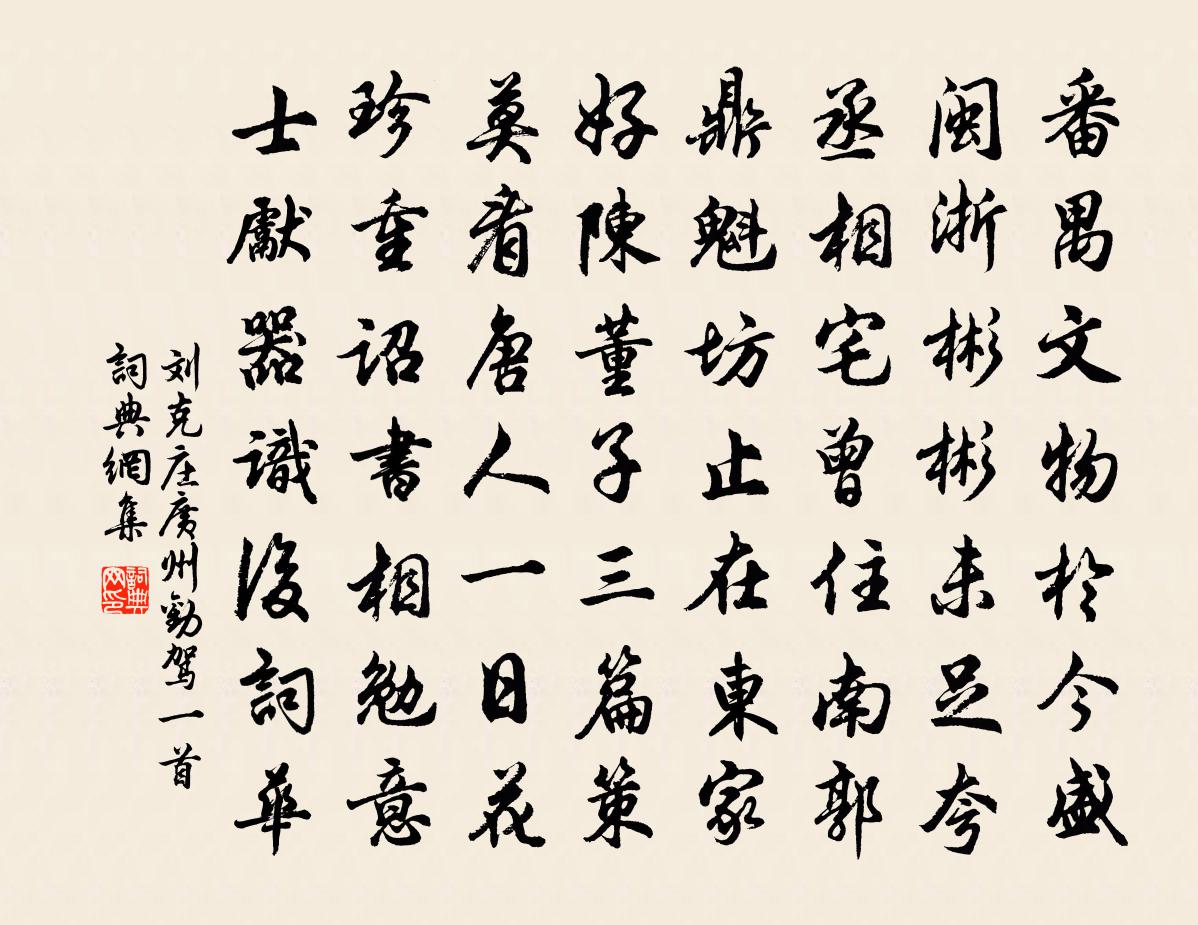 番禺文物於今盛
閩浙彬彬未足夸
丞相宅曾住南郭
鼎魁坊止在東家
好陳董子三篇策
莫看唐人一日花
珍重詔書相勉意
士獻器識後詞華
刘克庄廣州勸駕一首
詞典網集
詞典网印